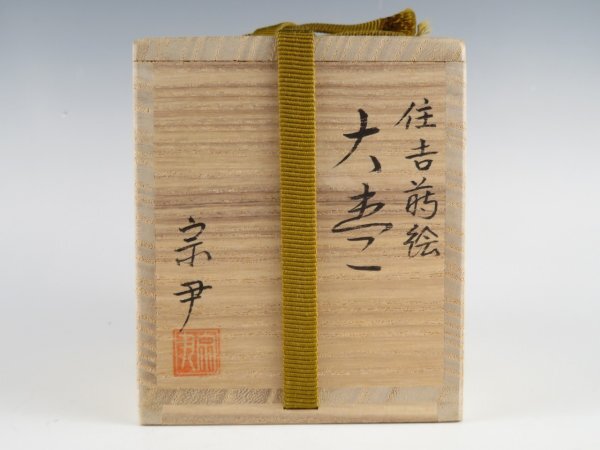 住吉蒔絵
大棗
宗尹
宗尹